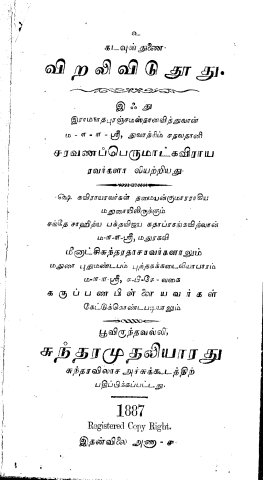 உ
கடவுள் துணை
விறலிவிடுதூது.
இஃது
இராமநாதபுரஞ்சமஸ்தானவித்துவான்
ம-ள-ள-ஸ்ரீ, துவாத்ரிம் சதவதானி
சரவணப்பெருமாட்கவிராய
ரவர்களா லியற்றியது
கவிராயரவர்கள் தலைமயன்குமாரராகிய
மதுரையிலிருக்கும்
சல்தே சாஹித்ய
ம-ள-ள-ஸ்ரீ, மதுரகவி
மீனாட்சிசுந்தரதாசரவர்களாலும்
மதுரை புதுமண்டபம் புத்தகக்கடைவியாபாரம்
ம-ள-ள-ஸ்ரீ
கருப்பணபிள்ளையவர்கள்
கேட்டுக்கொண்டபடியாலும்
பூவிருந்தவல்லி,
சுந்தரமுதலியாரது
சுந்தரவிலாச அச்சுக்கூடத்திற்
பதிப்பிக்கப்பட்டது.
1887
Registered Copy Right.
இதன்விலை அணா - ச